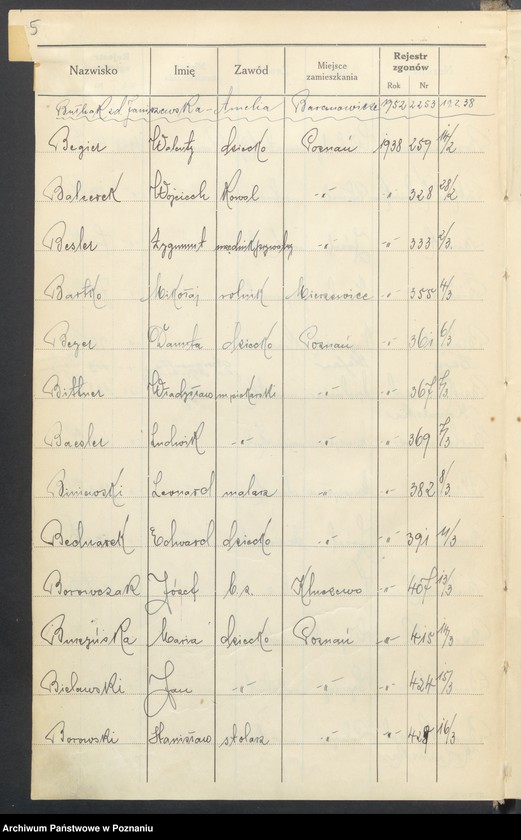 5
Nazwisko Imię Zawód Miejsce zamieszkania Rejestr zgonów
Rok Nr
zd Janiszewska - Amelia 1952 2263 19.2.58
Begier Walenty dziecko Poznań 1938 259 14/2
Balcerek Wojciech kowal -"- -"- 328 28/2
Besler Zygmunt -"- -"- 333 2/3
Bartko Mikołaj rolnik -"- 355 4/3
Beyer Danuta dziecko Poznań -"- 361 6/3
Bittner Władysław m. piekarski -"- -"- 367 7/3
Baesler Ludwik -"- -"- -"- 369 7/3
Biniewski Leonard malarz -"- -"- 382 8/3
Bednarek Edward dziecko -"- -"- 391 11/3
Borowczak Józef b.z. Kluczewo -"- 407 13/3
Burzyńska Maria dziecko Poznań -"- 415 14/3
Bielawski Jan -"- -"- -"- 424 15/3
Borowski Stanisław stolarz -"- -"- 428 16/3
Archiwum Państwowe w Poznaniu